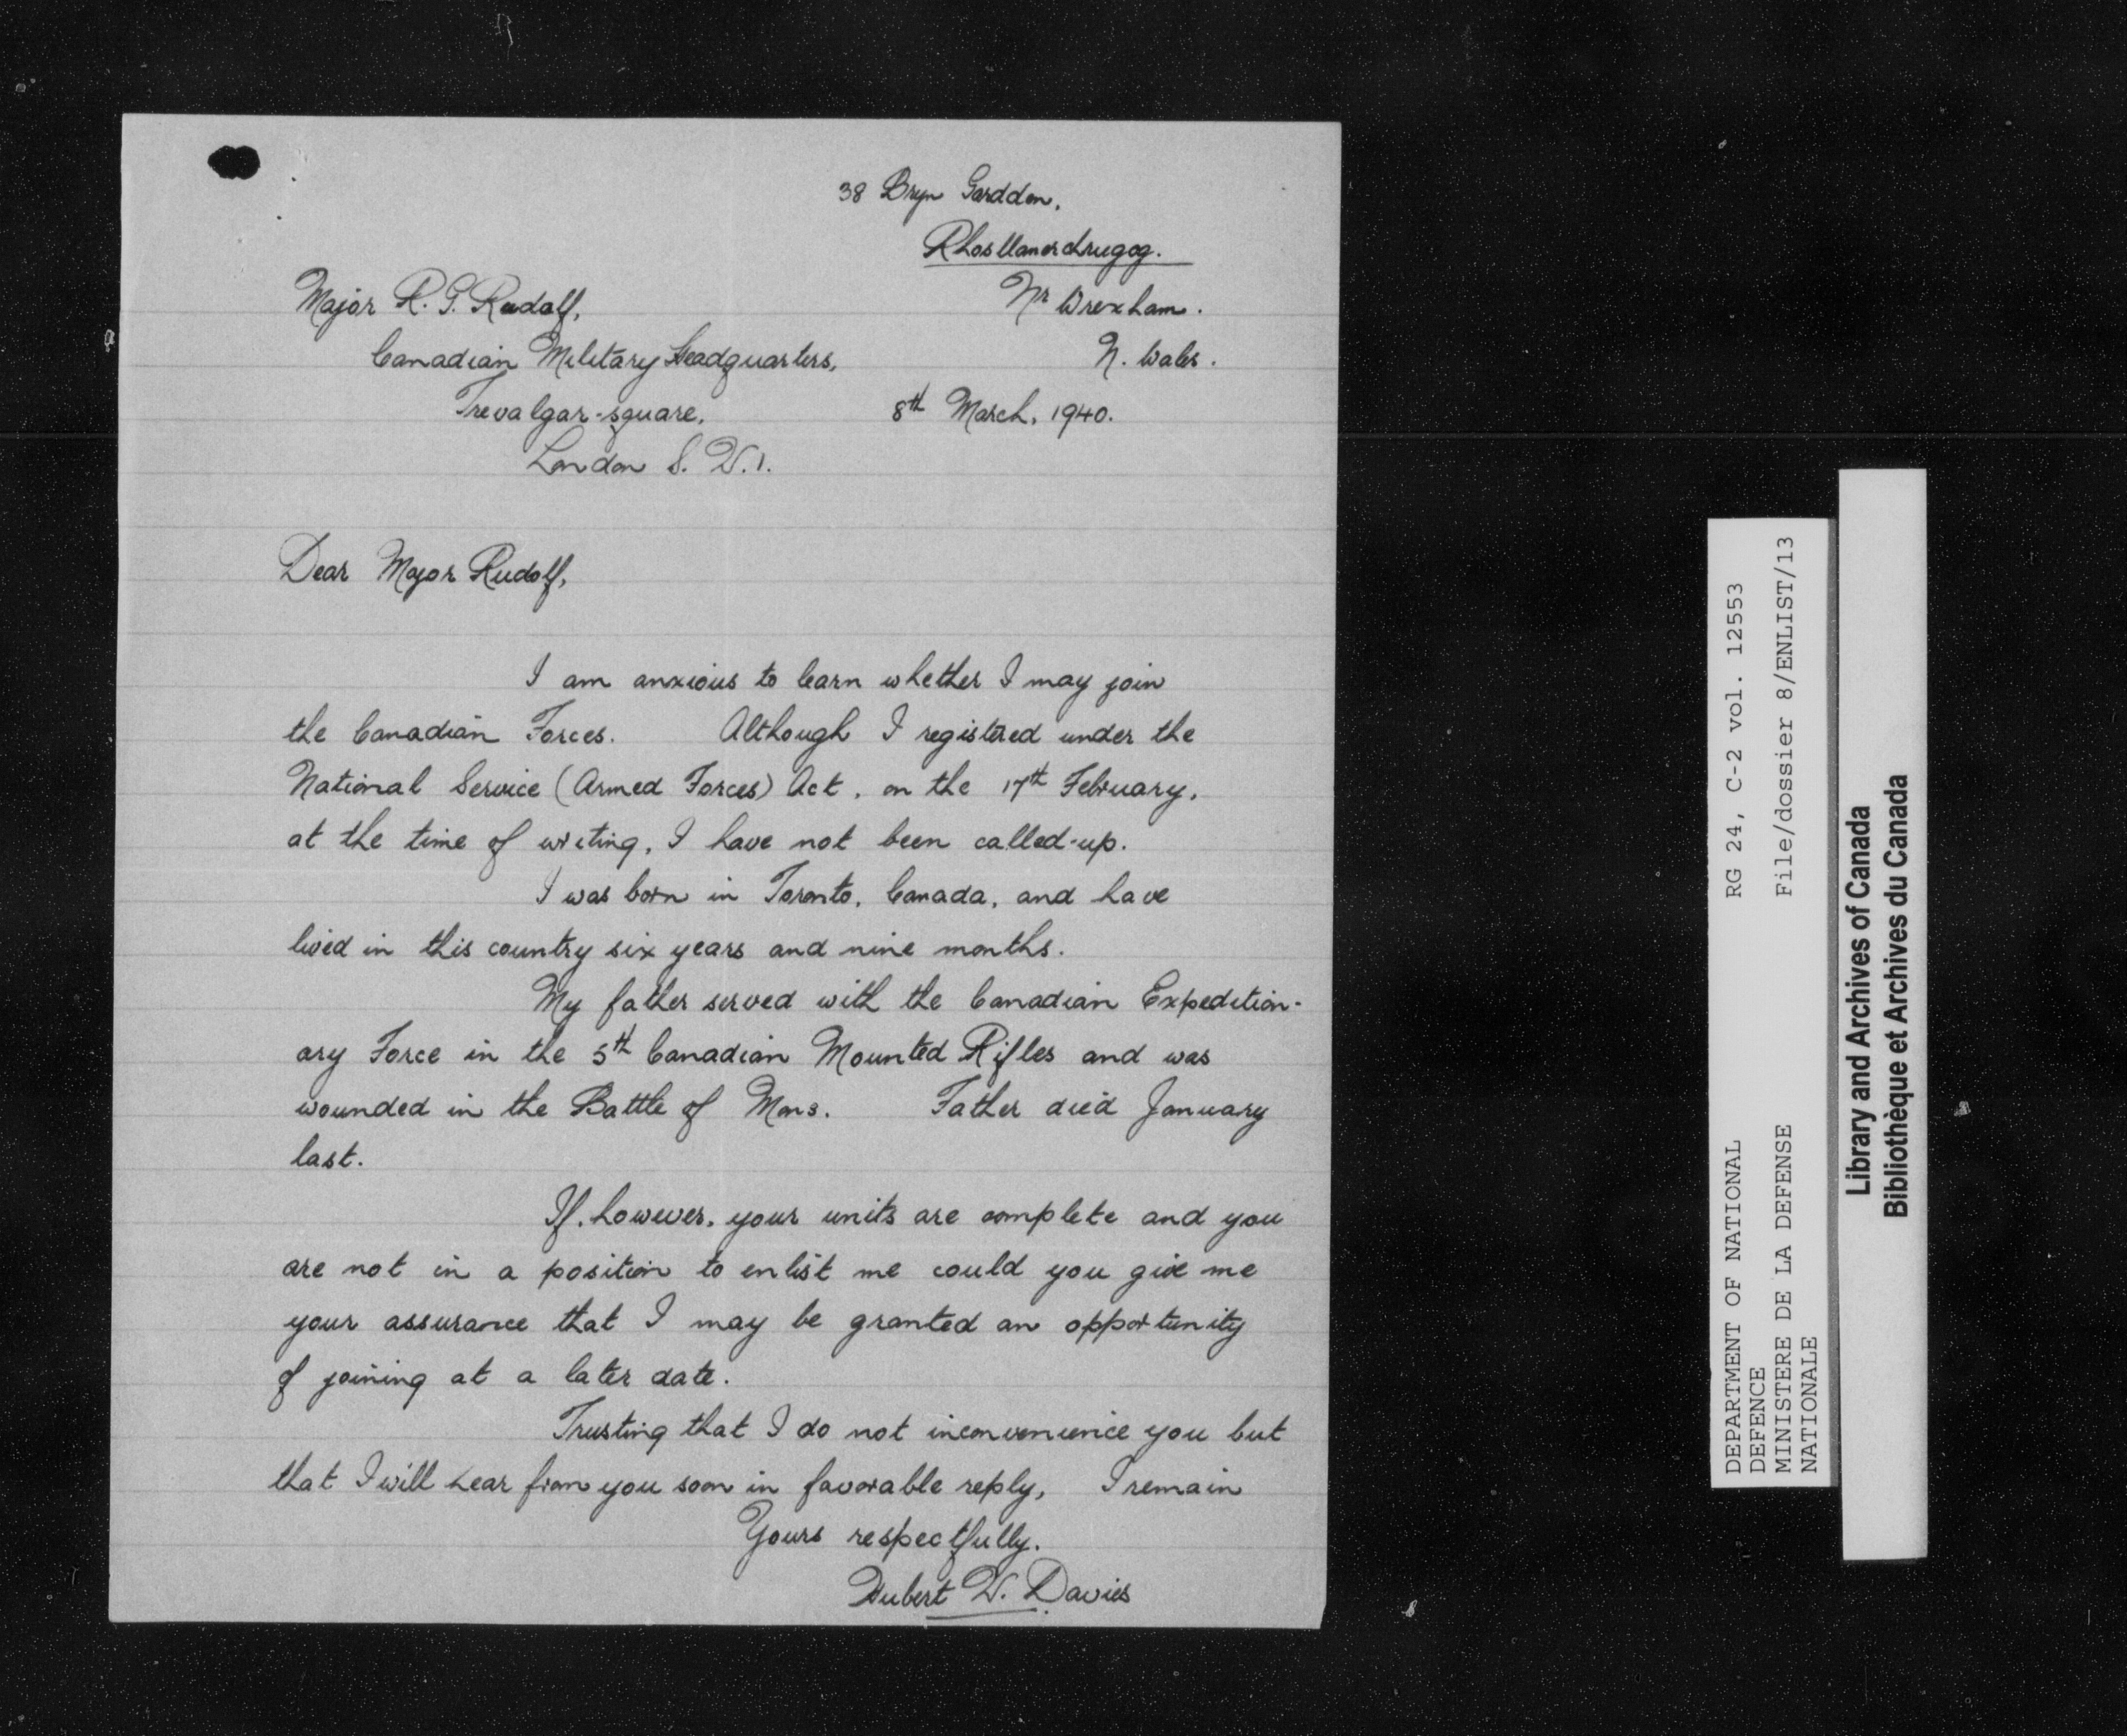 38 Bryn Gardden,
Rhosllanerchrugog.
Nr Wrexham.
N. Wales.
8th March, 1940.
Major R. G. Rudolf,
Canadian Military Headquarters,
Trevalgar-square,
London S. W. 1.
Dear Major Rudolf,
I am anxious to learn whether I may join
the Canadian Forces. Although I registered under the
National Service (Armed Forces) Act, on the 17th February,
at the time of writing, I have not been called-up.
I was born in Toronto, Canada, and have
lived in this country six years and nine months.
My father served with the Canadian Expedition-
ary Force in the 5th Canadian Mounted Rifles and was
wounded in the Battle of Mons. Father died January
last.
If, however, your units are complete and you
are not in a position to enlist me could you give me
your assurance that I may be granted an opportunity
of joining at a later date.
Trusting that I do not inconvenience you but
that I will hear from you soon in favorable reply, I remain
Yours respectfully.
Hubert W. Davies
DEPARTMENT OF NATIONAL RG 24, C-2 vol. 12553
DEFENCE
MINISTERE DE LA DEFENSE File/dossier 8/ENLIST/13
NATIONALE
Library and Archives of Canada
Bibliothèque et Archives du Canada